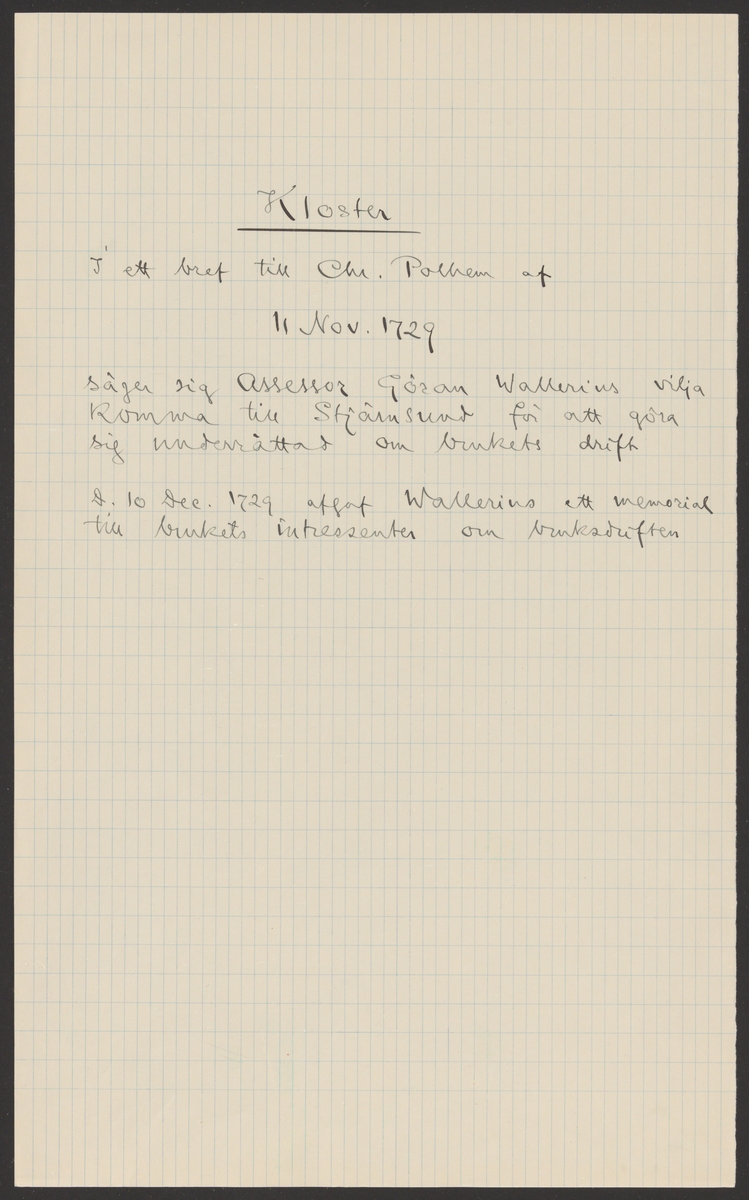 Kloster
I ett bref till Chr. Polhem af
11 Nov. 1729
säger sig Assessor Göran Wallerius vilja
komma till Stjärnsund för att göra
sig underrättad om brukets drift
D. 10 Dec. 1729 afgaf Wallerius ett memorial
till brukets intressenter om bruksdriften